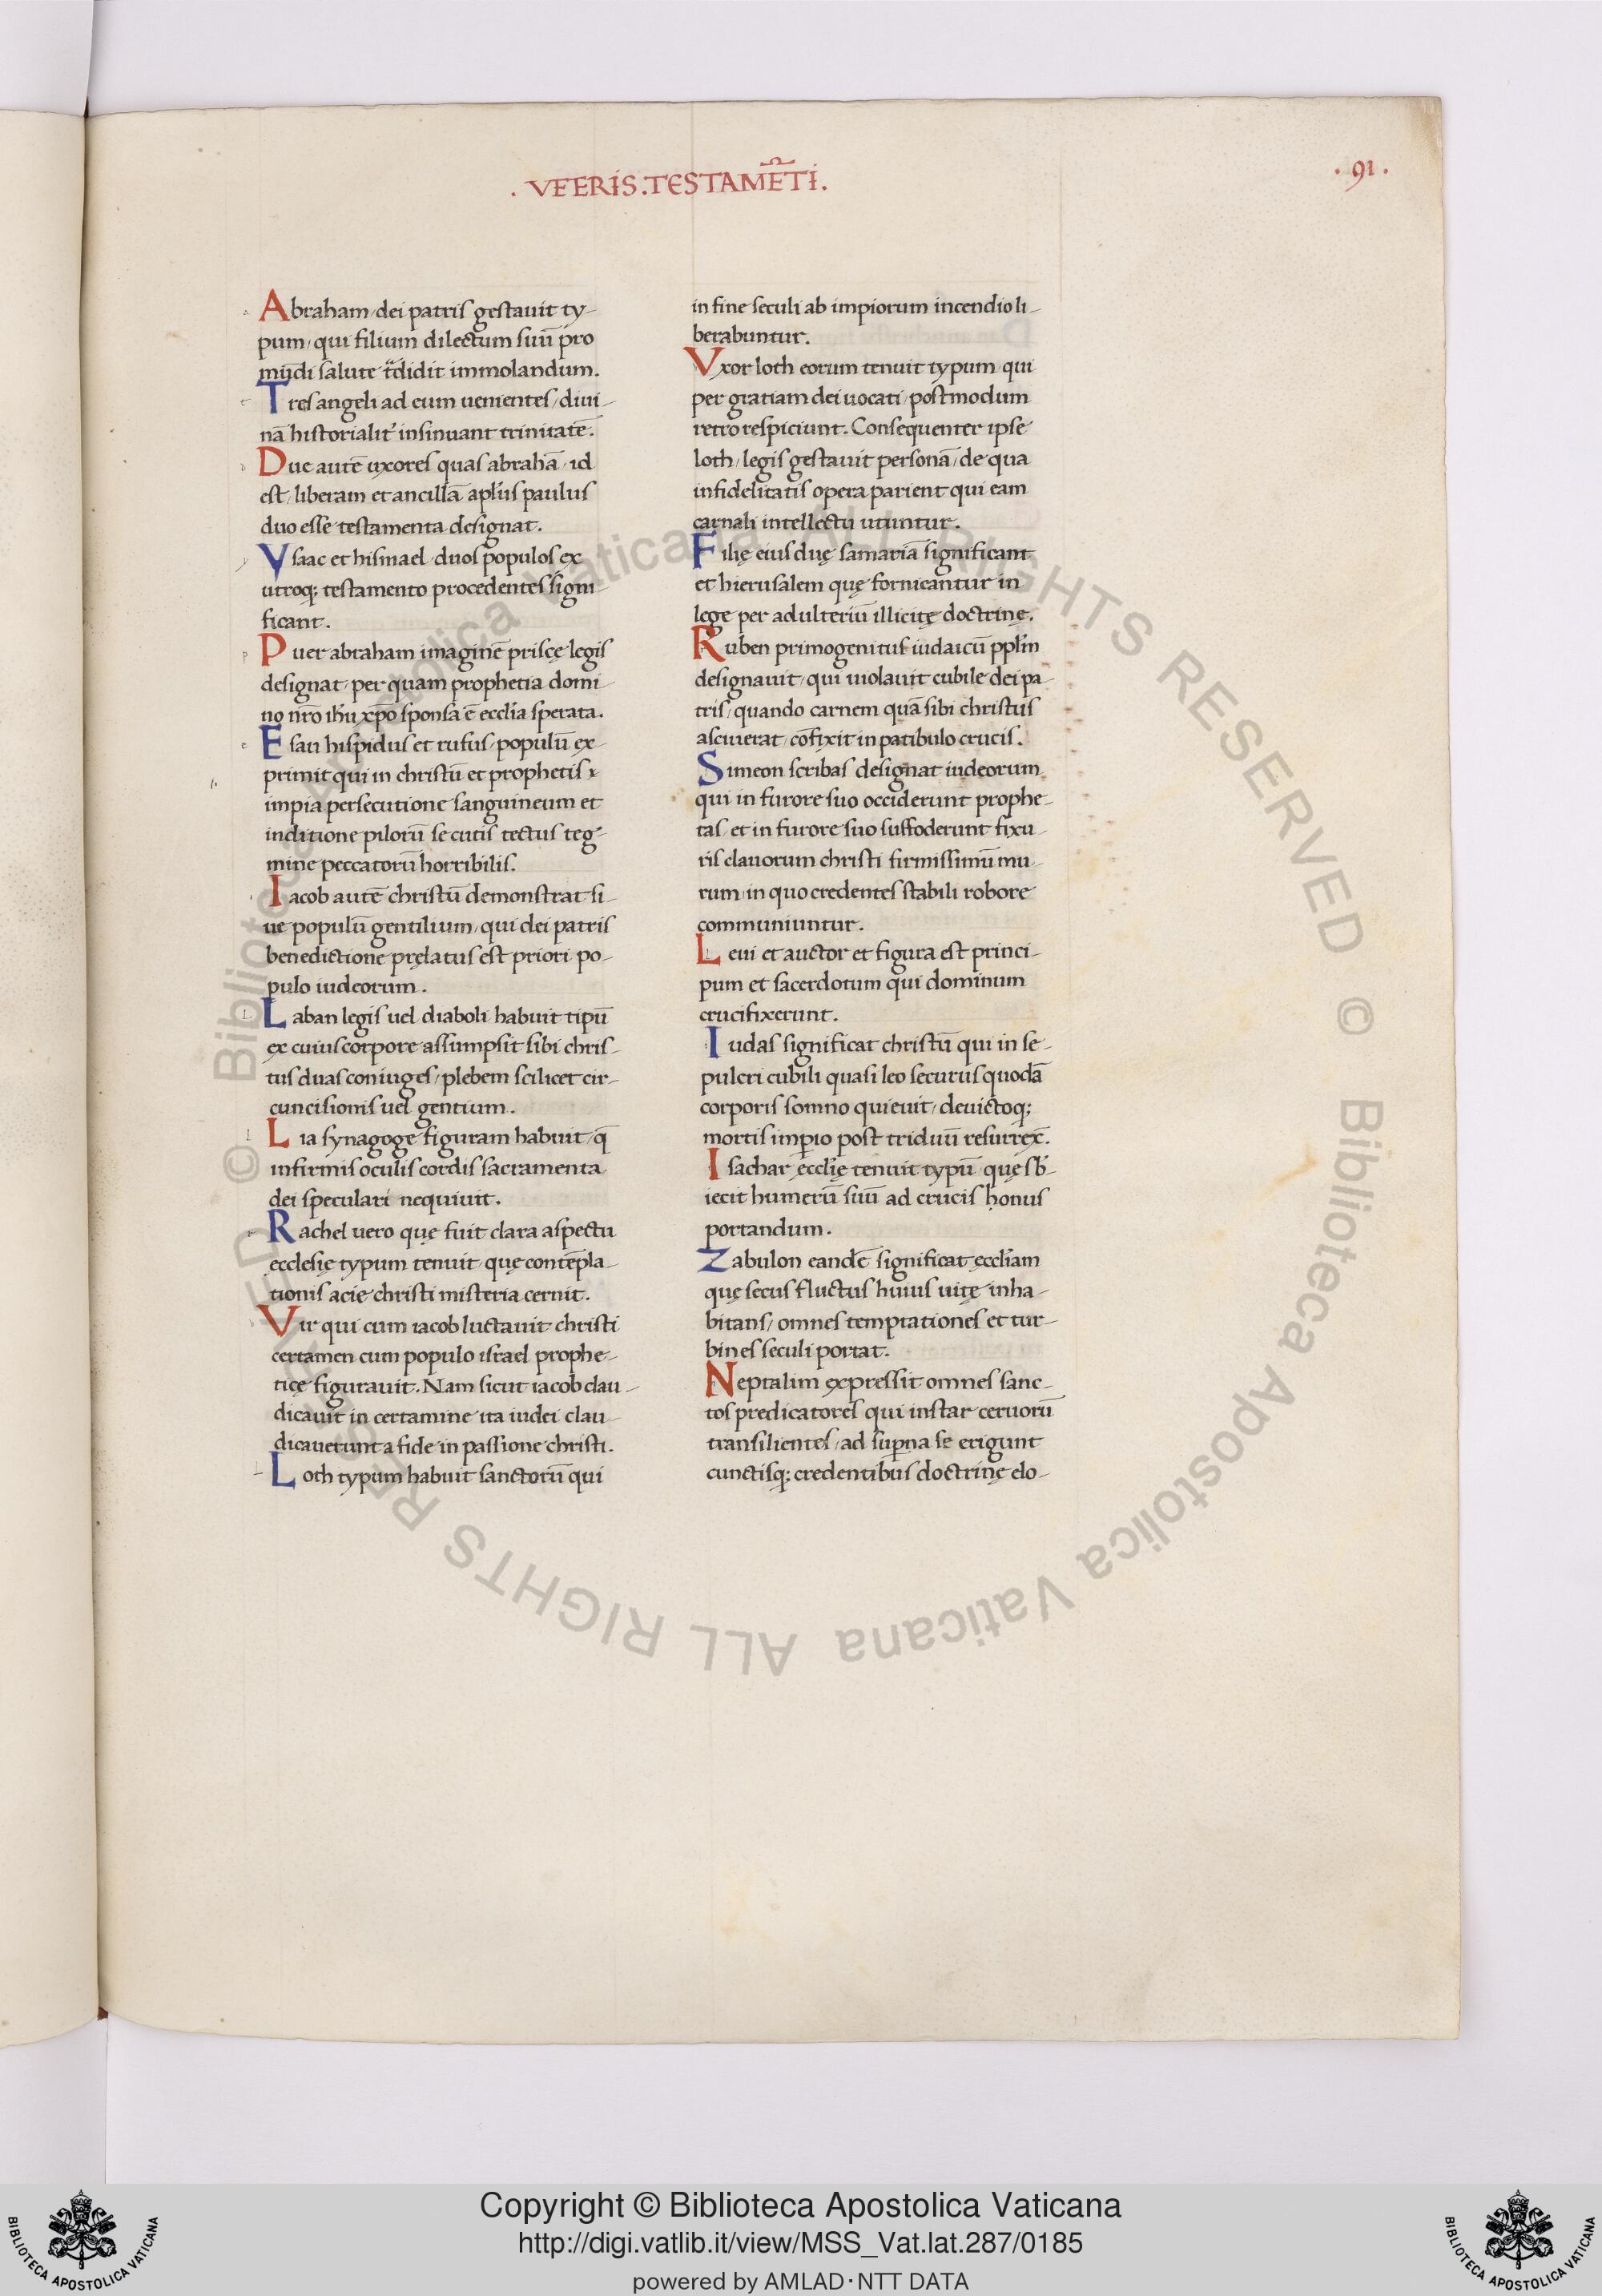 . VETERIS . TESTAMĒTI .
. 91 .
Abraham, dei patris gestauit ty-
pum, qui filium dilectum suū pro
mūdi salute t̄didit immolandum.
Tres angeli ad eum uenientes, diui-
nā historialit' insinuant trinitatē.
Due autē uxores quas abrahā, id
est, liberam et ancillā apl'us paulus
duo esse testamenta designat.
Ysaac et hismael duos populos ex
utroq; testamento procedentes signi-
ficant.
Puer abraham imaginē priscę legis
designat, per quam prophetia domi-
no nr̄o ih̄u xp̄o sponsa ē eccl'ia sperata.
Esau hispidus et rufus, populū ex-
primit qui in christū et prophetis x
impia persecutione sanguineum et
inditione pilorū se cutis tectus teg-
mine peccatorū horribilis.
Iacob autē christū demonstrat si-
ue populū gentilium, qui dei patris
benedictione pręlatus est priori po-
pulo iudeorum.
Laban legis uel diaboli habuit tipū
ex cuius corpore assumpsit sibi chris-
tus duas coniuges, plebem scilicet cir-
cuncisionis uel gentium.
Lia synagoge figuram habuit, q̄
infirmis oculis cordis sacramenta
dei speculari nequiuit.
Rachel uero quę fuit clara aspectu
ecclesię typum tenuit quę contēpla-
tionis acie christi misteria cernit.
Vir qui cum iacob luctauit christi
certamen cum populo israel prophe-
ticę figurauit. Nam sicut iacob clau-
dicauit in certamine ita iudei clau-
dicauerunt a fide in passione christi.
Loth typum habuit sanctorū qui
in fine seculi ab impiorum incendio li-
berabuntur.
Vxor loth eorum tenuit typum qui
per gratiam dei uocati, postmodum
retro respiciunt. Consequenter ipse
loth, legis gestauit personā, de qua
infidelitatis opera parient qui eam
carnali intellectu utuntur.
Filię eius duę samariā significant
et hierusalem quę fornicantur in
lege per adulteriū illicitę doctrinę.
Ruben primogenitus iudaicū ppl'm
designauit, qui uiolauit cubile dei pa-
tris, quando carnem quā sibi christus
asciuerat, cōfixit in patibulo crucis.
Simeon scribas designat iudeorum
qui in furore suo occiderunt prophe-
tas, et in furore suo suffoderunt fixu-
ris clauorum christi firmissimū mu-
rum, in quo credentes stabili robore
communiuntur.
Leui et auctor et figura est princi-
pum et sacerdotum qui dominum
crucifixerunt.
Iudas significat christū qui in se-
pulcri cubili quasi leo securus quodā
corporis somno quieuit, deuictoq;
mortis imp̄io post triduū resurrex̄.
Isachar ęccl'ię tenuit typū quę sb'-
iecit humerū suū ad crucis honus
portandum.
Zabulon eandē significat ęccl'iam
quę secus fluctus huius uitę inha-
bitans, omnes temptationes et tur-
bines seculi portat.
Neptalim expressit omnes sanc-
tos predicatores qui instar ceruorū
transilientes, ad sup̄na se erigunt
cunctisq; credentibus doctrinę elo-
© Biblioteca Apostolica Vaticana ALL RIGHTS RESERVED © Biblioteca Apostolica Vaticana ALL RIGHTS RESERVED
Copyright © Biblioteca Apostolica Vaticana
http://digi.vatlib.it/view/MSS_Vat.lat.287/0185
powered by AMLAD · NTT DATA
BIBLIOTECA APOSTOLICA VATICANA
BIBLIOTECA APOSTOLICA VATICANA